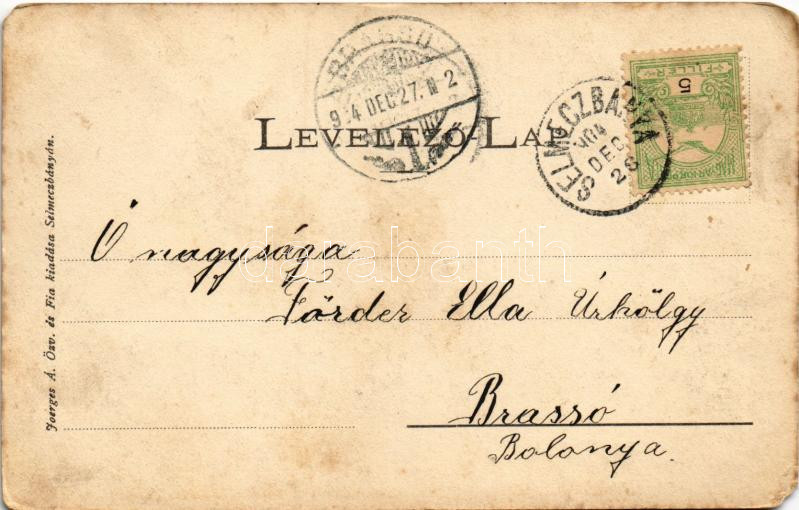 BRASSÓ
904 DEC. 27. N 2
LEVELEZŐ-LAP
SELMECZBÁNYA
904
DEC
26
5
FILLÉR
Ó nagysága
Förder Ella Úrhölgy
Brassó
Bolonya.
Joerges Á. Özv. és Fia kiadása Selmeczbányán.
darabanth